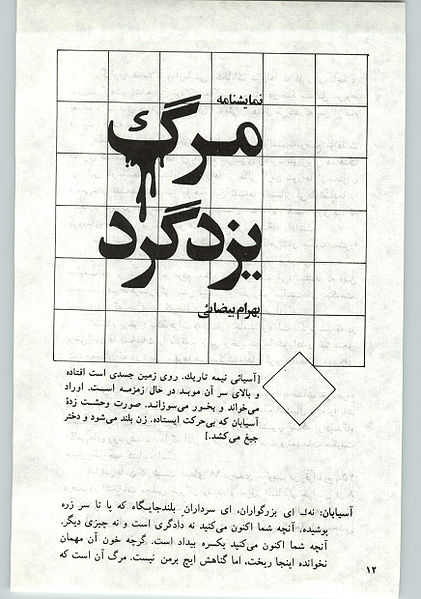 نمایشنامه
مرگ
یزدگرد
بهرام بیضائی
[آسیائی نیمه تاریك. روی زمین جسدی است افتاده
و بالای سر آن موبد در حال زمزمه است. اوراد
می‌خواند و بخور می‌سوزاند. صورت وحشت زدهٔ
آسیابان که بی‌حرکت ایستاده. زن بلند می‌شود و دختر
جیغ می‌کشد.]
آسیابان: نه ــ ای بزرگواران، ای سرداران بلندجایگاه که پا تا سر زره
پوشیده. آنچه شما اکنون می‌کنید نه دادگری است و نه چیزی دیگر.
آنچه شما اکنون می‌کنید یکسره بیداد است. گرچه خون آن مهمان
نخوانده اینجا ریخت، اما گناهش ایچ برمن نیست. مرگ آن است که
۱۲